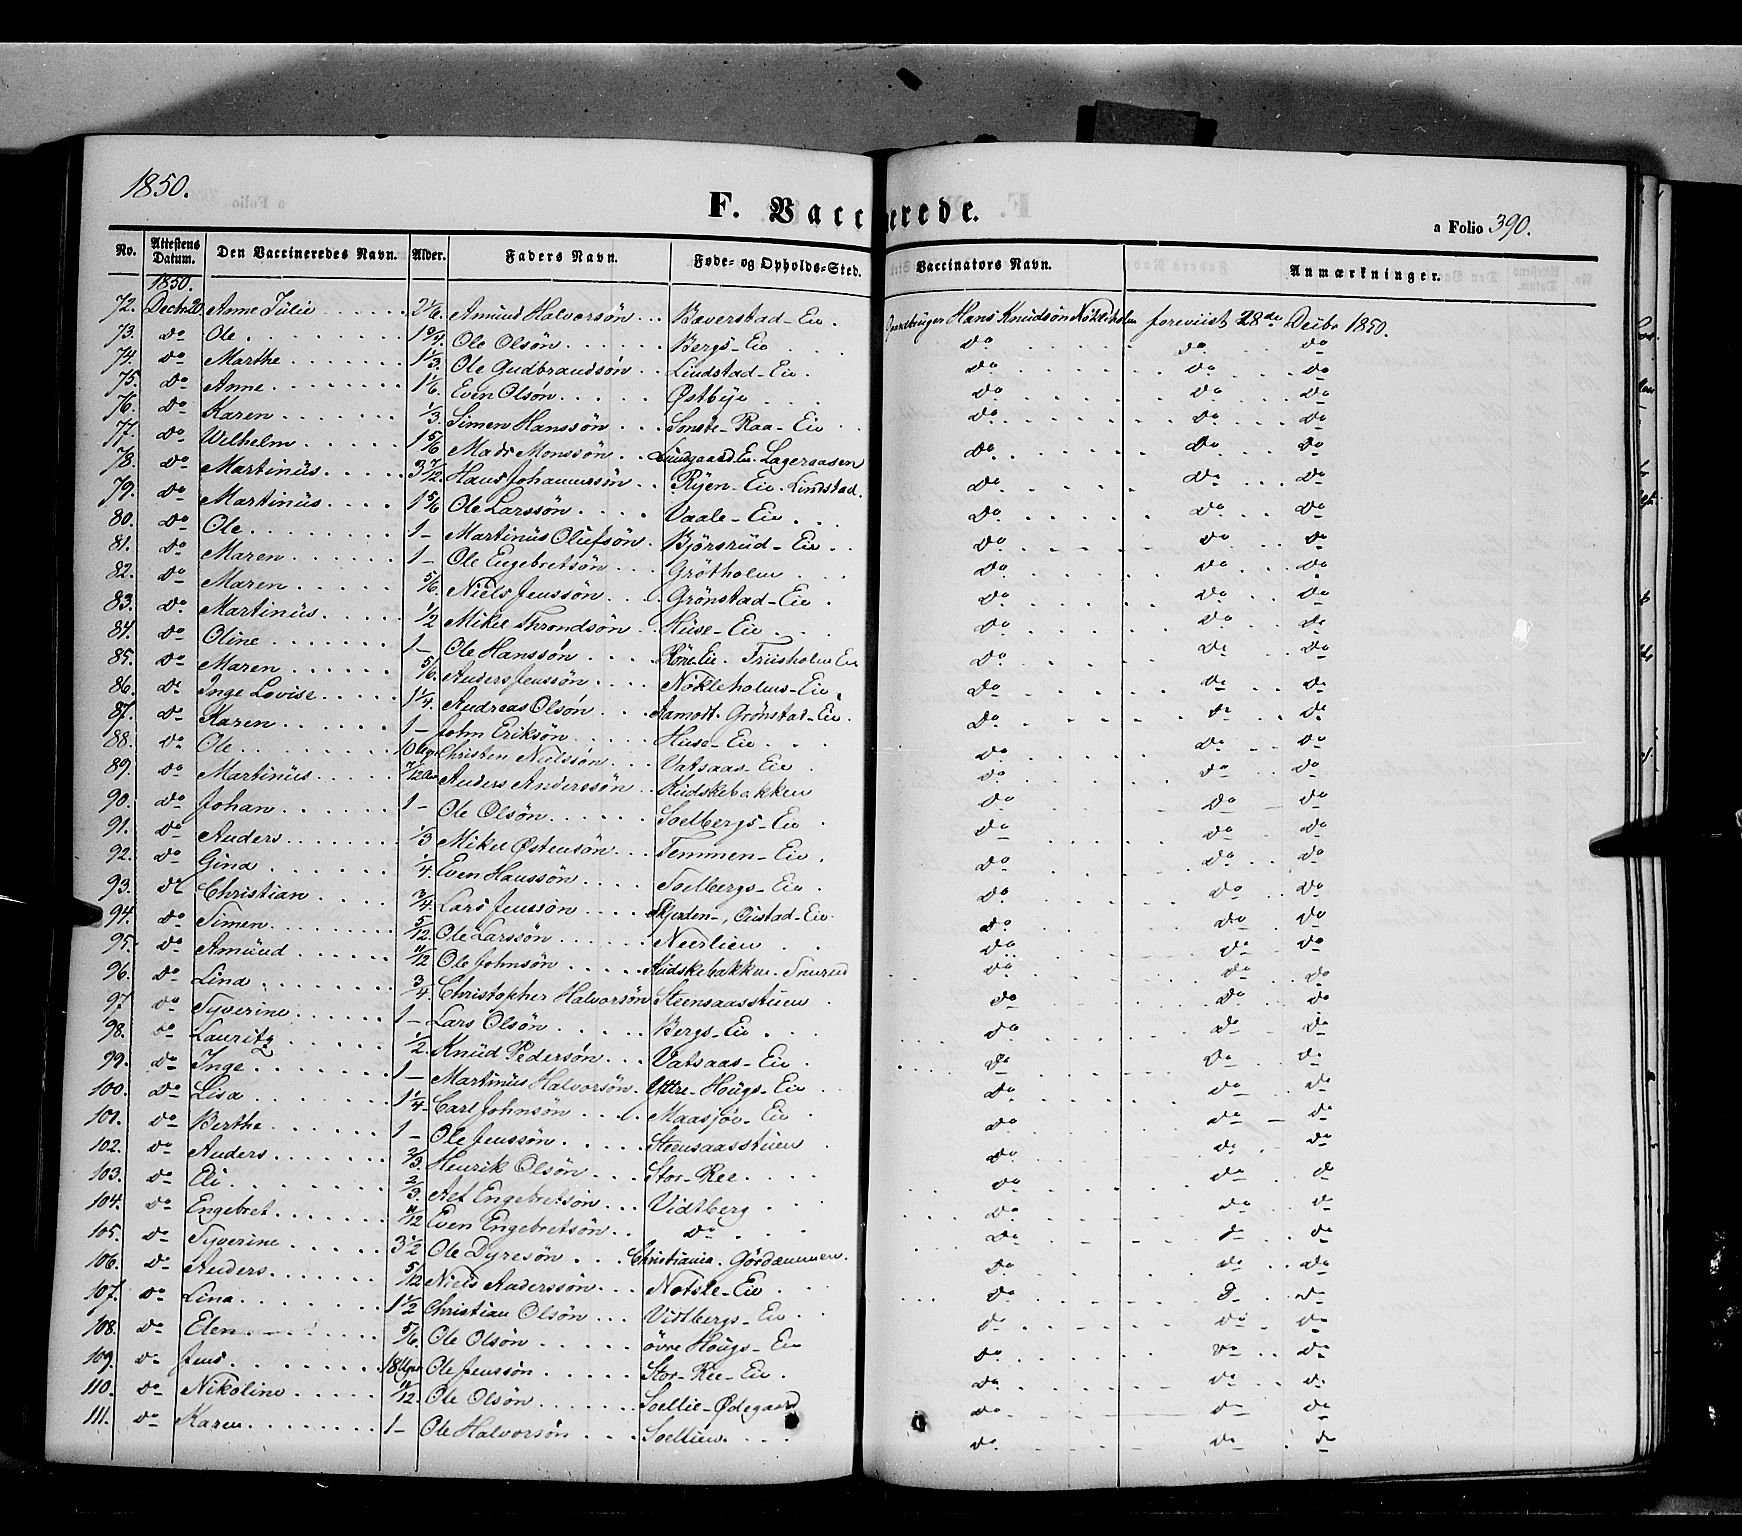 1850.
F. Vaccinerede.
a Folio 390.
No. Attestens Datum. Den Vaccineredes Navn. Alder. Faders Navn. Føde- og Opholds-Sted. Vaccinators Navn. Anmærkninger.
1850.
72. Decbr 20 Anne Julie 2 1/6 Amund Halvorsön Baverstad-Eie Gaardbruger Hans Knudsön Nökleholm foreviist 28de Decbr 1850.
73. do Ole 1 3/4 Ole Olsön Bergs-Eie do do do
74. do Marthe 1 1/3 Ole Gudbrandsön Lindstad-Eie do do do
75. do Anne 1 1/6 Even Olsön Østbye do do do
76. do Karen 1/3 Simen Hanssön Sönste-Raa-Eie do do do
77. do Wilhelm 1 5/6 Mads Monssön Lundgaard Ei. Lagersasen do do do
78. do Martinus 3 7/12 Hans Johannessön Ryen-Eie. Lindstad do do do
79. do Martinus 1 5/6 Ole Larssön Vaale-Eie do do do
80. do Ole 1- Martinus Olufsön Björsrud-Eie do do do
81. do Maren 1- Ole Engebretsön Grötholm do do do
82. do Maren 5/6 Niels Jenssön Grönstad-Eie do do do
83. do Martinus 1/2 Mikel Throndsön Huse-Eie do do do
84. do Oline 1- Ole Hanssön Röne Eie. Friisholm Eie do do do
85. do Maren 5/6 Anders Jenssön Nökleholms-Eie do do do
86. do Inge Lovise 1 1/4 Andreas Olsön Aamodt. Grönstad-Eie do do do
87. do Karen 1- John Eriksön Huse-Eie do do do
88. do Ole 10 Uger Christen Nielssön Vatsaas-Eie do do do
89. do Martinus 7/12 Anders Anderssön Kudskebakken do do do
90. do Johan 1- Ole Olsön Soelbergs-Eie do do do
91. do Anders 1/3 Mikel Østensön Temmen-Eie do do do
92. do Gina 1/4 Even Hanssön Soelbergs-Eie do do do
93. do Christian 3/4 Lars Jenssön Skjerden-, Oustad-Eie do do do
94. do Simen 5/12 Ole Larssön Neerlien do do do
95. do Amund 11/12 Ole Johnsön Kudskebakken. do do do
96. do Lina 3/4 Christopher Halvorsön Steensaasstuen do do do
97. do Syverine 1- Lars Olsön Bergs-Eie do do do
98. do Lauritz 1/2 Knud Pedersön Vatsaas-Eie do do do
99. do Inge 1- Martinus Halvorsön Yttre-Hougs-Eie do do do
100. do Lisa 1 1/4 Carl Johnsön Maasjöv-Eie do do do
101. do Berthe 1- Ole Jenssön Steensaasstuen do do do
102. do Anders 2/3 Henrik Olsön Stor-Ree do do do
103. do Eli 2/3 Engebretsön Vidtberg do do do
104. do Engebret 11/12 Even Engebretsön do do do do
105. do Syverine 3 1/2 Ole Dyresön Christiania. do do do
106. do Anders 5/12 Niels Anderssön Notsle-Eie do do do
107. do Lina 1 1/2 Christian Olsön Vidtbergs-Eie do do do
108. do Elen 5/6 Ole Olsön övre Hougs-Eie do do do
109. do Jens 18 Uger Ole Jenssön Stor-Ree-Eie do do do
110. do Nikoline 11/12 Ole Olsön Soellie-Ødegaard do do do
111. do Karen 1- Ole Halvorsön Soellien do do do